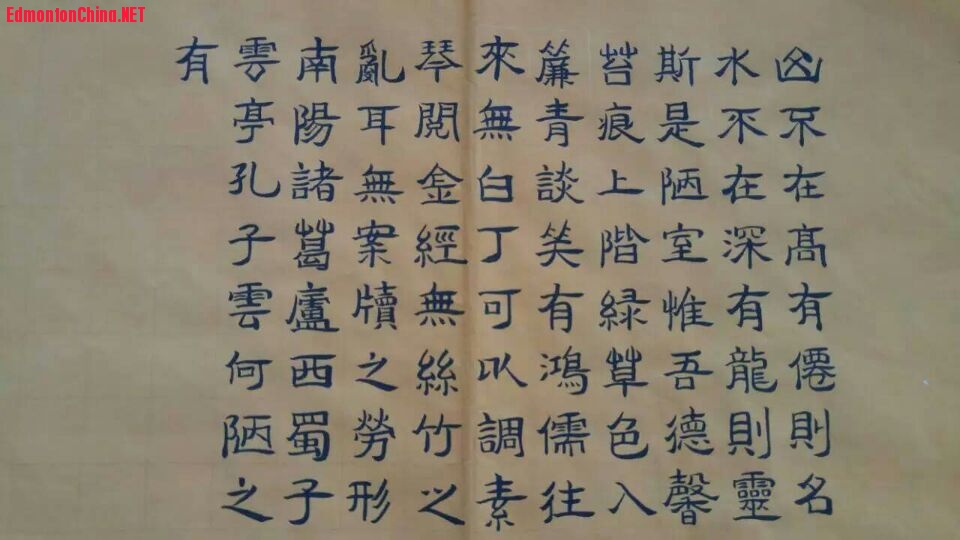 EdmontonChina.NET
山不在高有僊則名
水不在深有龍則靈
斯是陋室惟吾德馨
苔痕上階緑草色入
簾青談笑有鴻儒往
來無白丁可以調素
琴閱金經無絲竹之
亂耳無案牘之勞形
南陽諸葛廬西蜀子
雲亭孔子雲何陋之
有